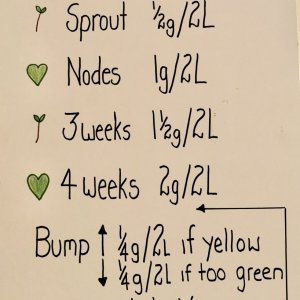 Sprout ½g/2L
Nodes 1g/2L
3 weeks 1½g/2L
4 weeks 2g/2L
Bump ↑ ¼g/2L if yellow
↓ ¼g/2L if too green